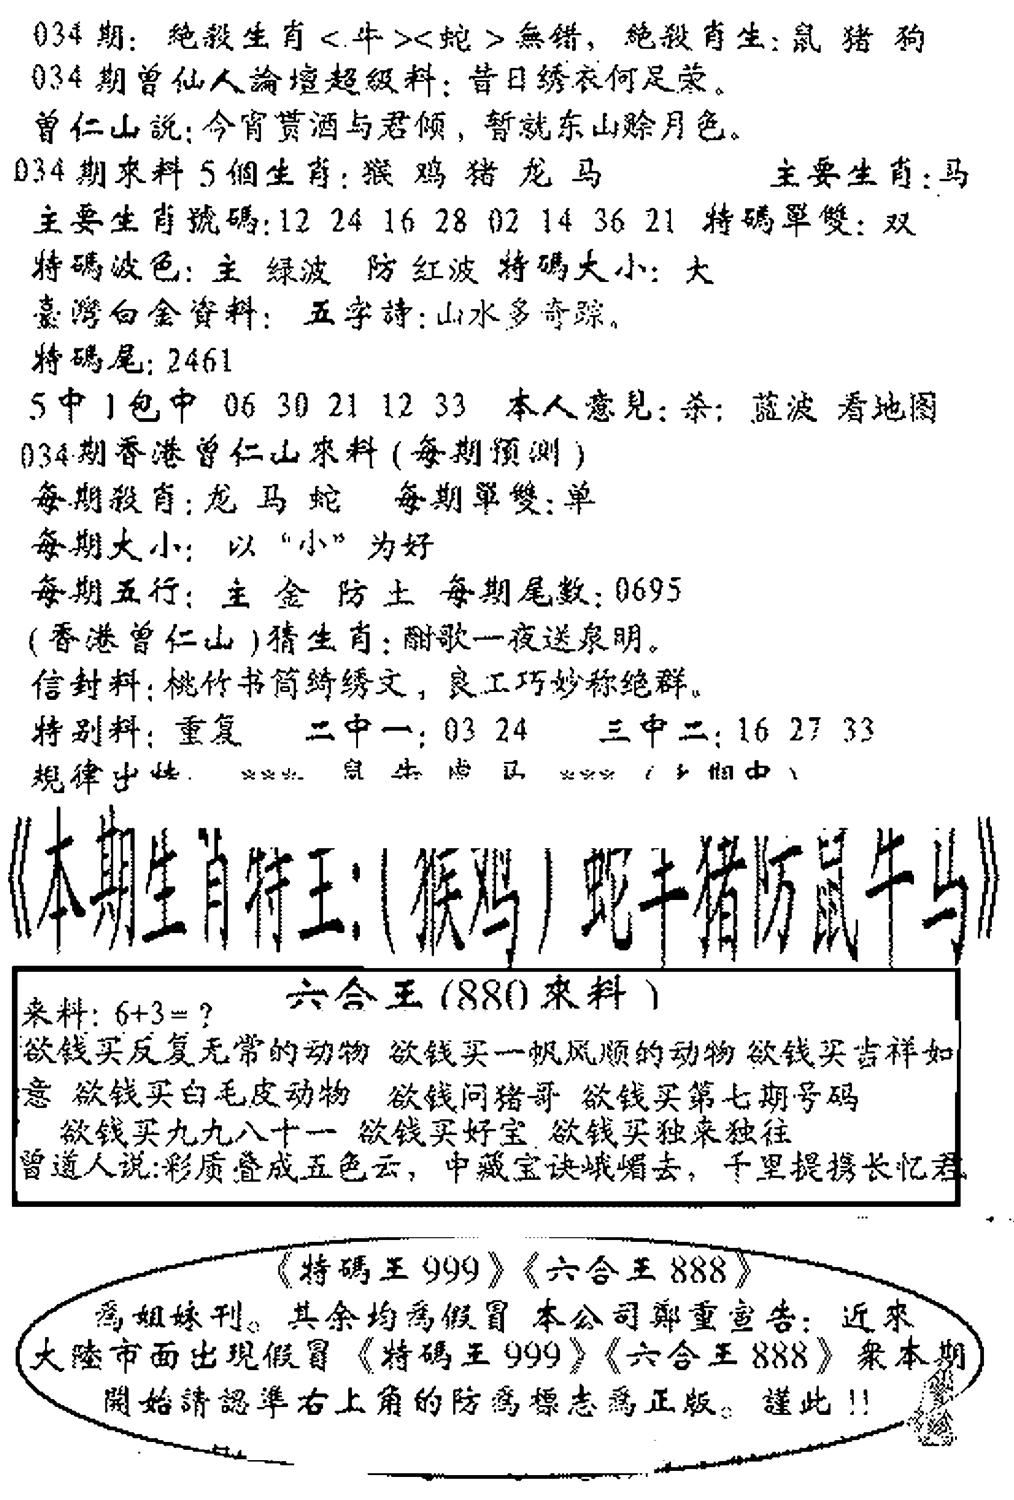 034期：絶殺生肖<牛><蛇>無错，絶殺肖生：鼠 猪 狗
034期曾仙人論壇超級料：昔日绣衣何足荣。
曾仁山説：今宵贳酒与君倾，暫就东山赊月色。
034期來料5個生肖：猴 鸡 猪 龙 马 主要生肖：马
主要生肖號碼：12 24 16 28 02 14 36 21 特碼單雙：双
特碼波色：主 绿波 防 红波 特碼大小：大
臺灣白金資料： 五字詩：山水多奇踪。
特碼尾：2461
5中1包中 06 30 21 12 33 本人意見：杀： 蓝波 看地图
034期香港曾仁山來料(每期預測)
每期殺肖：龙 马 蛇 每期單雙：单
每期大小： 以“小”为好
每期五行： 主 金 防 土 每期尾数：0695
(香港曾仁山)猜生肖：酣歌一夜送泉明。
信封料：桃竹书筒绮绣文，良工巧妙称绝群。
特别料：重复 二中一：03 24 三中二：16 27 33
規律出特： *** 鼠 牛 虎 马 *** ( 個中)
《本期生肖特王：(猴鸡)蛇牛猪防鼠牛马》
六合王(880來料)
来料：6+3=？
欲钱买反复无常的动物 欲钱买一帆风顺的动物 欲钱买吉祥如
意 欲钱买白毛皮动物 欲钱问猪哥 欲钱买第七期号码
欲钱买九九八十一 欲钱买好宝 欲钱买独来独往
曾道人说：彩质叠成五色云，中藏宝诀峨嵋去，千里提携长忆君。
《特碼王999》《六合王888》
爲姐妹刊。其余均爲假冒 本公司鄭重宣告：近來
大陸市面出現假冒《特碼王999》《六合王888》衆本期
開始請認準右上角的防爲標志爲正版。謹此!!